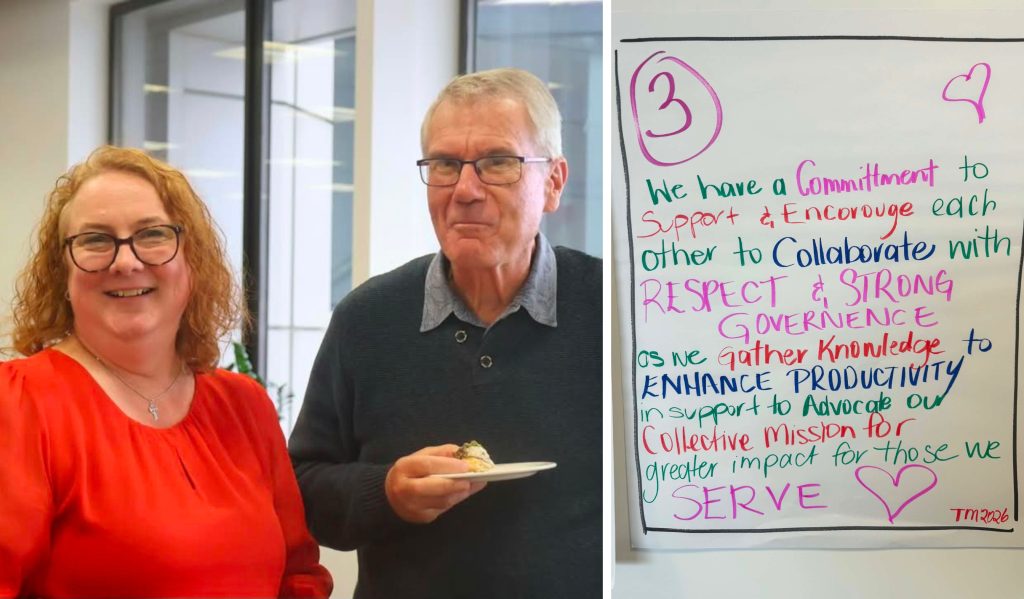 3
We have a Committment to
Support & Encorouge each
other to Collaborate with
RESPECT & STRONG
GOVERNENCE
as we Gather Knowledge to
ENHANCE PRODUCTIVITY
in support to Advocate our
Collective Mission for
greater impact for those we
SERVE
TM2026